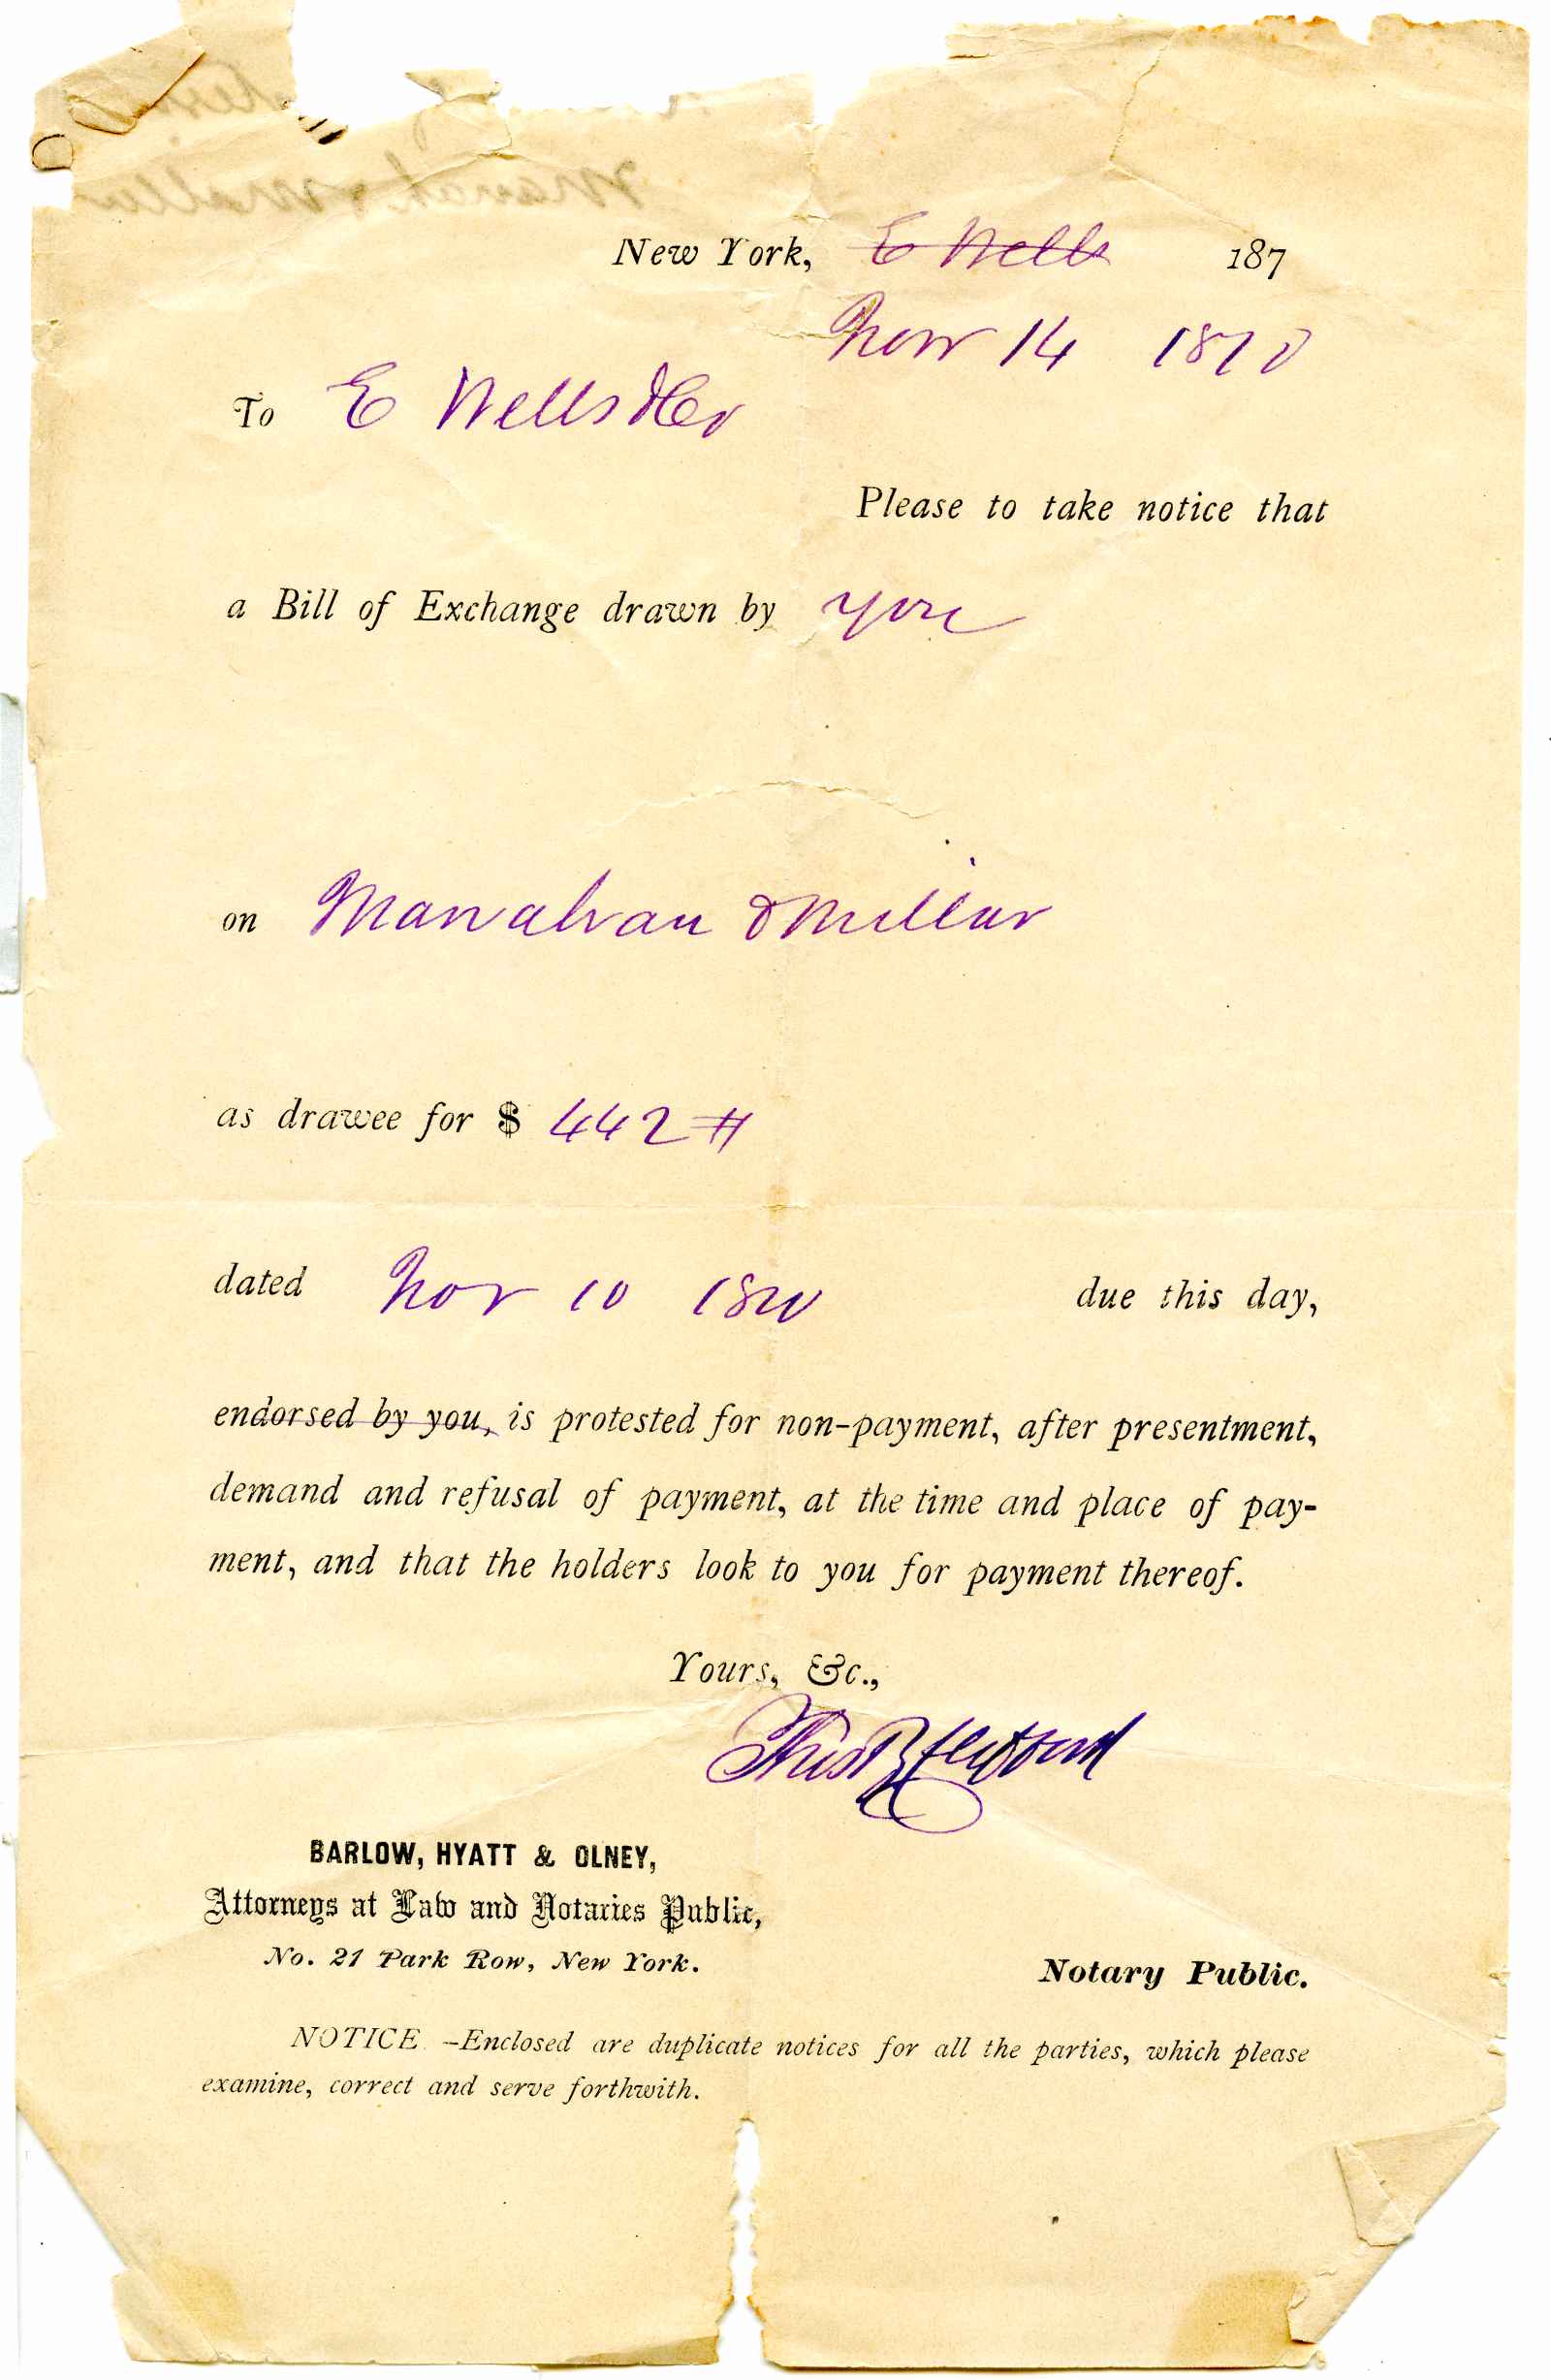 New York, E Wells 187
Nov 14 1870
To E Wells & Co
Please to take notice that
a Bill of Exchange drawn by you
on Manahan & Millar
as drawee for $ 442 #
dated Nov 10 1870 due this day,
endorsed by you, is protested for non-payment, after presentment,
demand and refusal of payment, at the time and place of pay-
ment, and that the holders look to you for payment thereof.
Yours, &c.,
BARLOW, HYATT & OLNEY,
Attorneys at Law and Notaries Public,
No. 21 Park Row, New York.
Notary Public.
NOTICE –Enclosed are duplicate notices for all the parties, which please
examine, correct and serve forthwith.